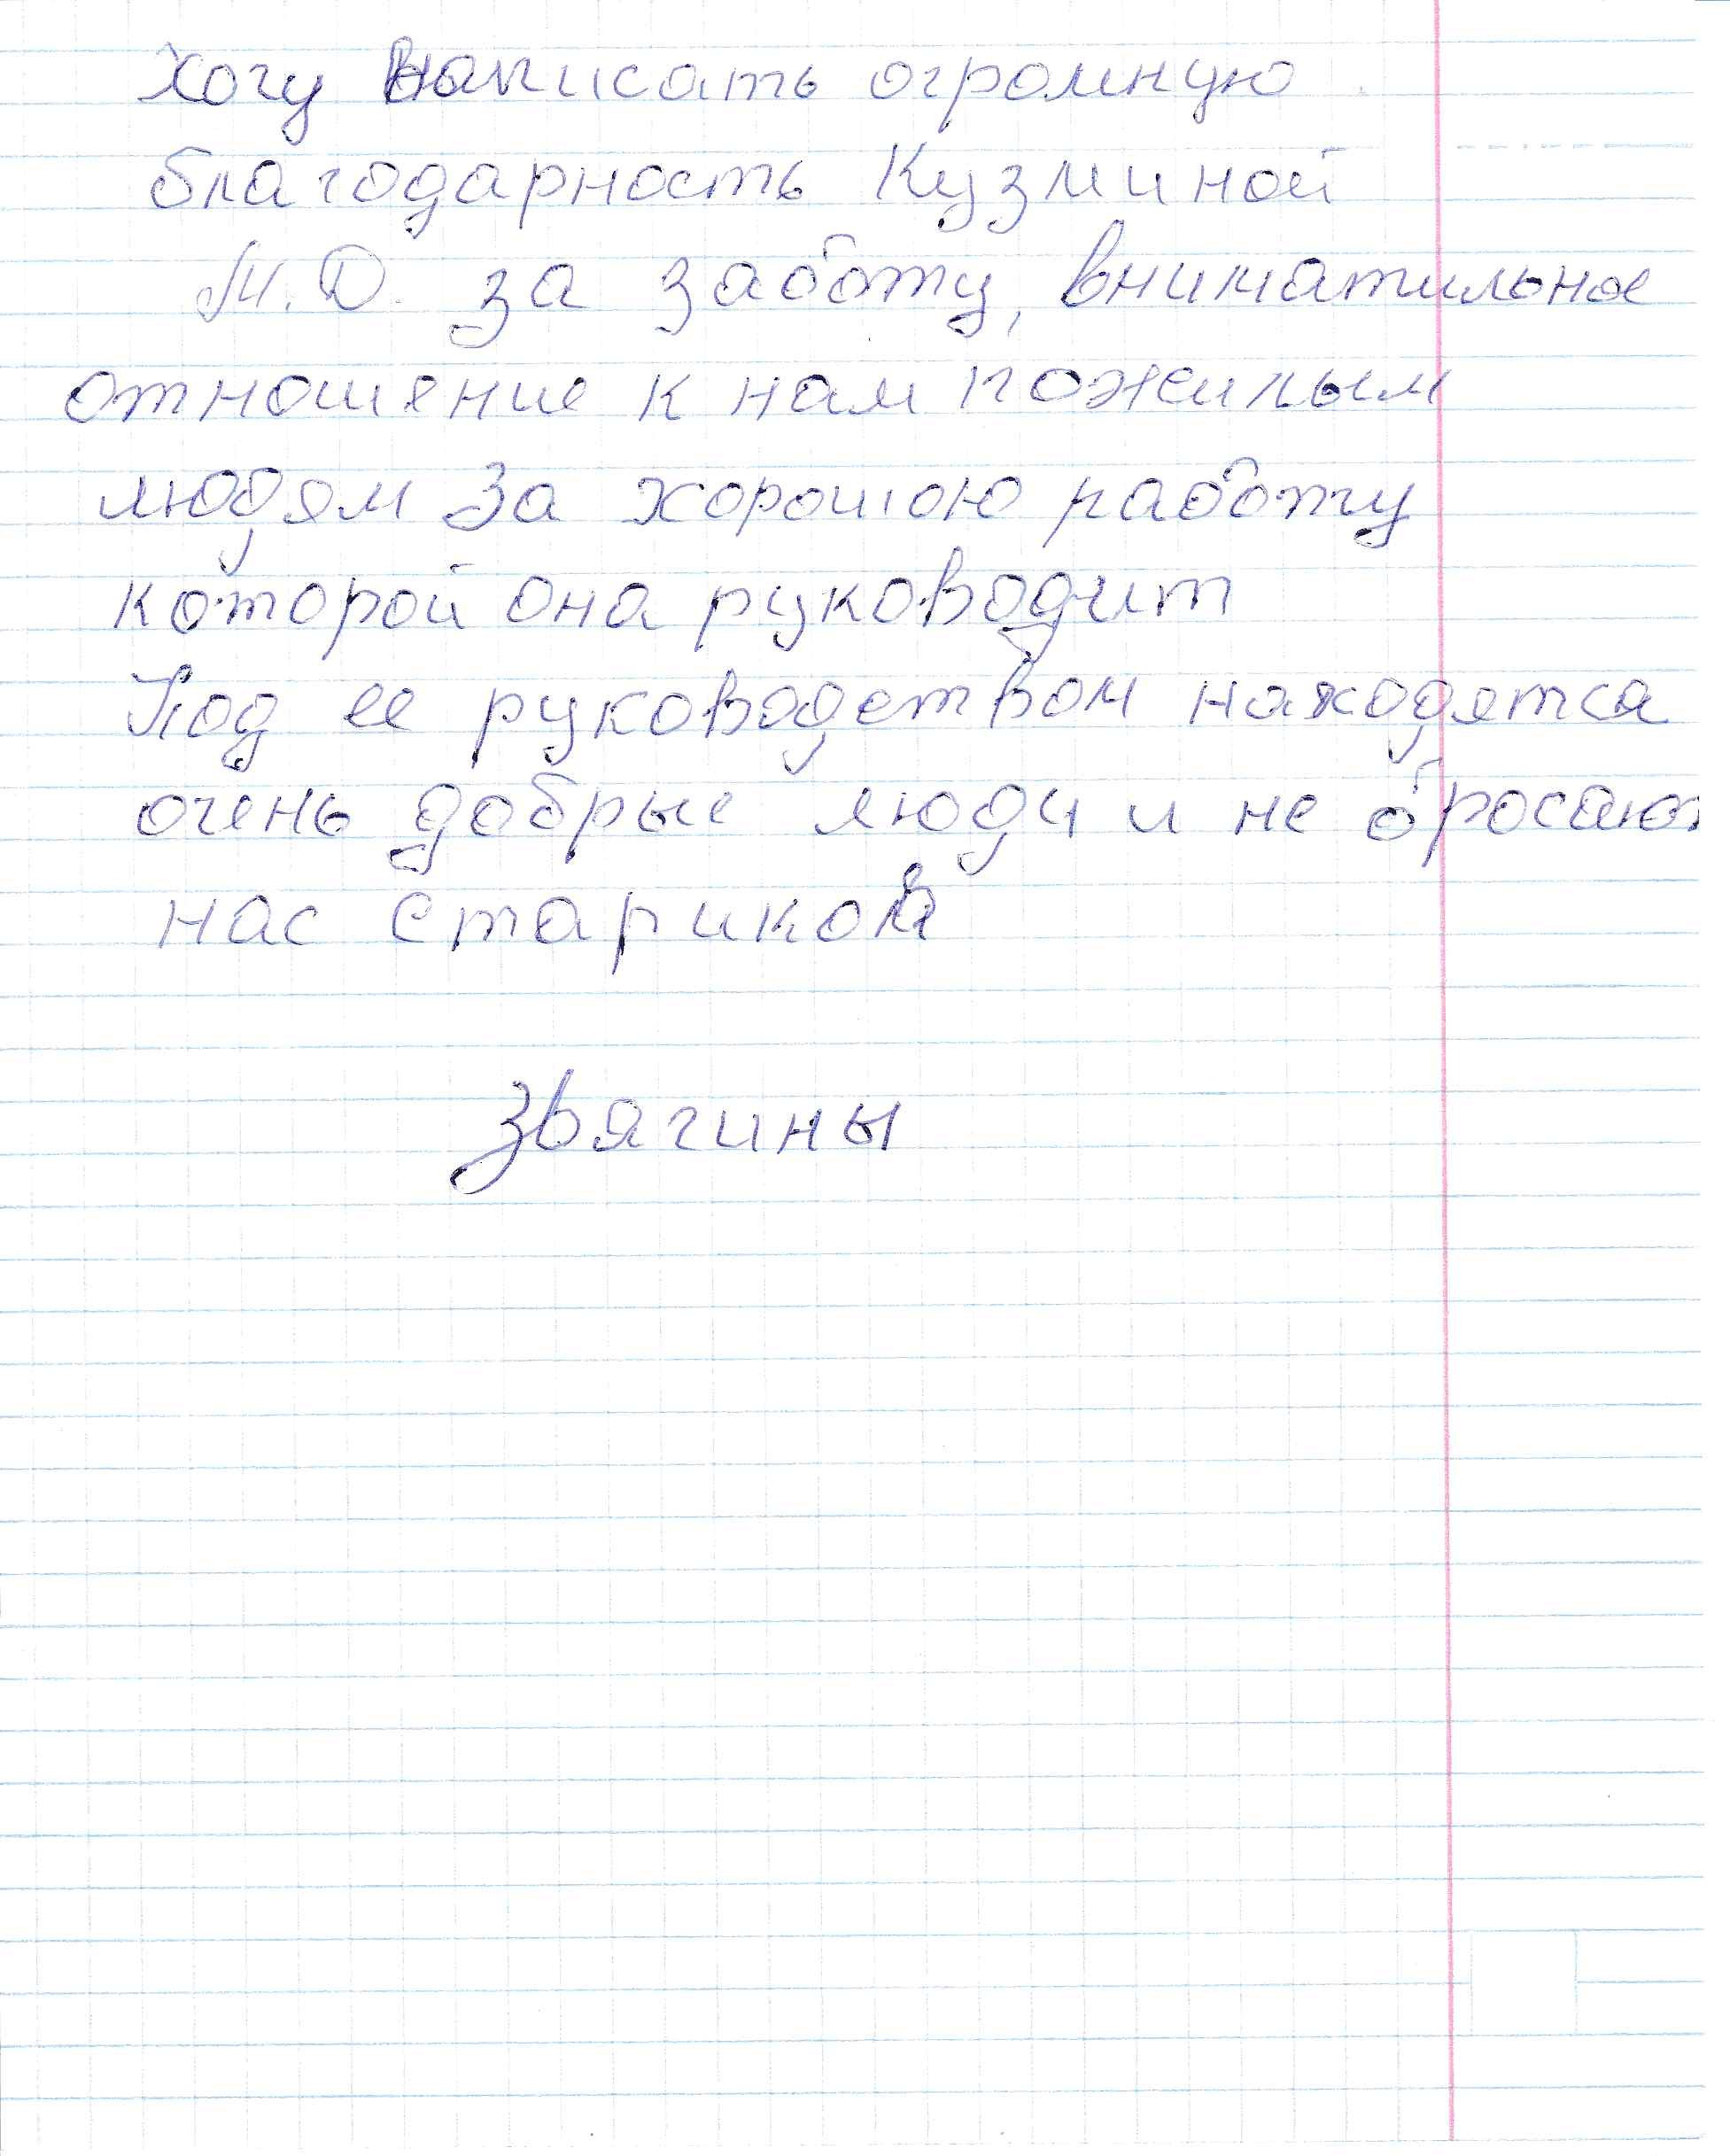 Хочу написать огромную
благодарность Кузминой
М.Д. за заботу, внимательное
отношение к нам пожилым
людям за хорошою работу
которой она руководит
Под ее руководством находятса
очень добрые люди и не бросают
нас стариков
Звягины